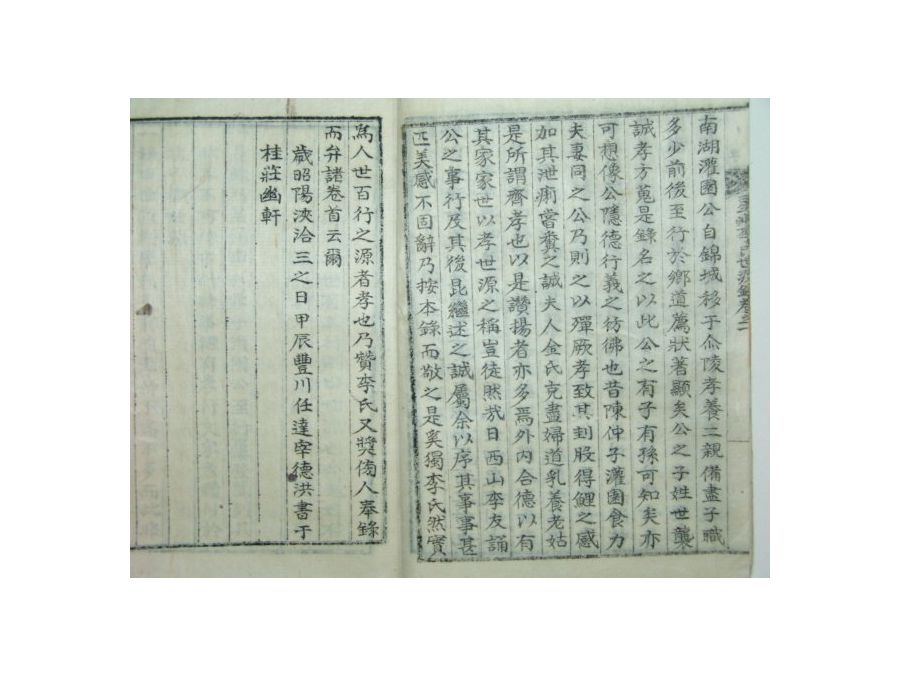 南湖灌園公自錦城移于尒陵孝養二親備盡子職
多少前後至行於鄉道薦狀著顯矣公之子姓世襲
誠孝方蒐是錄名之以此公之有子有孫可知矣亦
可想像公隱德行義之彷彿也昔陳仲子灌園食力
夫妻同之公乃則之以殫厥孝致其刲股得鯉之感
如其泄痢嘗糞之誠夫人金氏克盡婦道乳養老姑
是所謂齊孝也以是讚揚者亦多焉外內合德以有
其家家世以孝世源之稱豈徒然哉日西山李友誦
公之事行及其後昆繼述之誠屬余以序其事事甚
匹美感不固辭乃按本錄而敬之是奚獨李氏然實
為人世百行之源者孝也乃贊李氏又奬俻人奉錄
而弁諸卷首云爾
歲昭陽浹洽三之日甲辰豐川任達宰德洪書于
桂莊幽軒